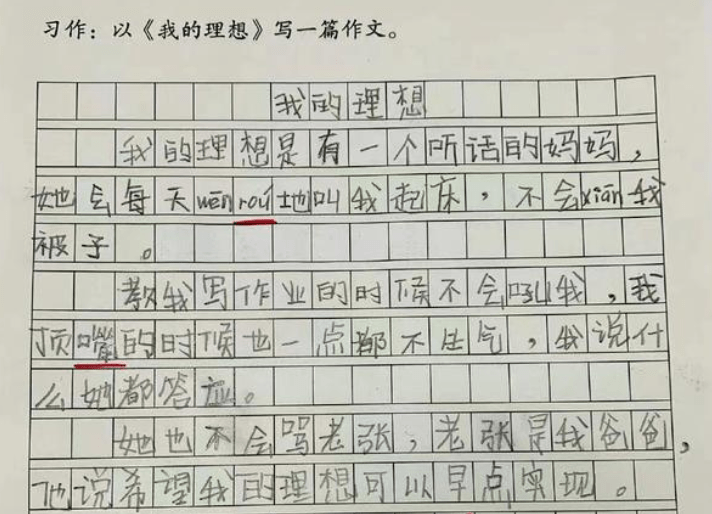 习作：以《我的理想》写一篇作文。
我的理想
我的理想是有一个听话的妈妈，
她会每天wēn roú地叫我起床，不会xiān我
被子。
教我写作业的时候不会吼我，我
顶嘴的时候也一点都不生气，我说什
么她都答应。
她也不会骂老张，老张是我爸爸，
他说希望我的理想可以早点实现。